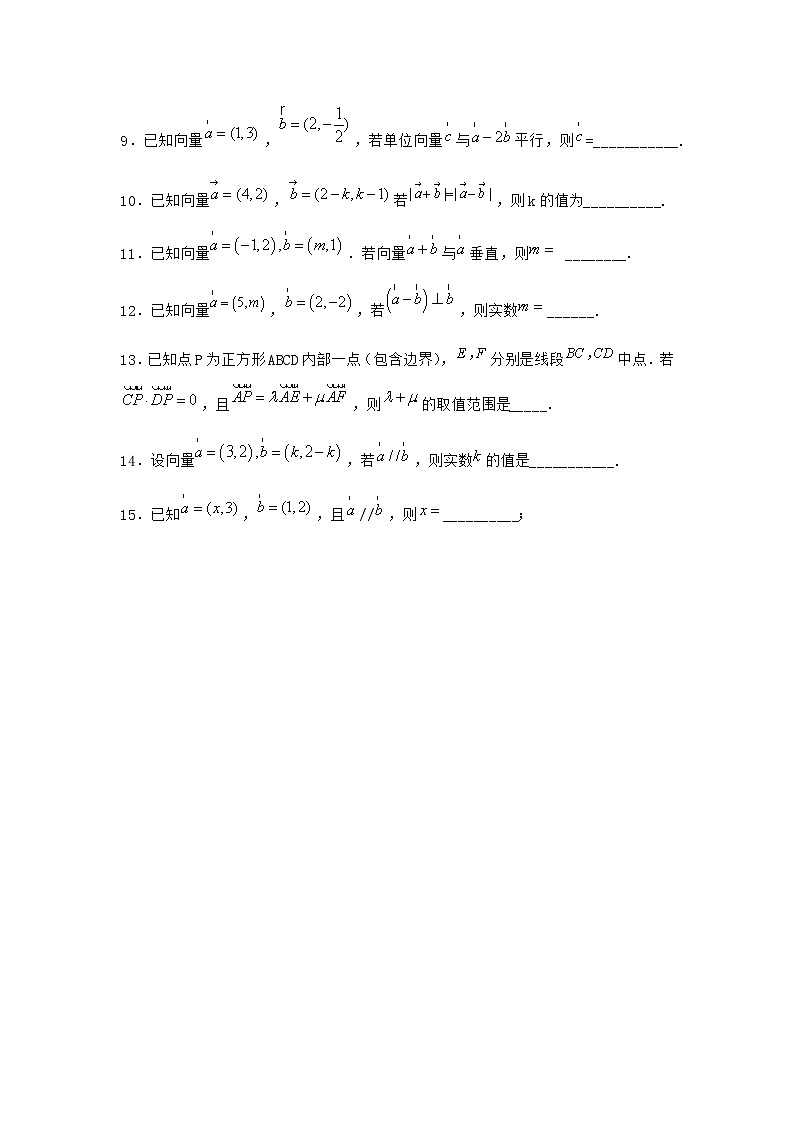 9．已知向量a=(1,3)，b=(2,-1/2)，若单位向量c与a-2b平行，则c=___________.
10．已知向量a=(4,2)，b=(2-k,k-1)若|a+b|=|a-b|，则k的值为__________.
11．已知向量a=(-1,2),b=(m,1)．若向量a+b与a垂直，则m= ________.
12．已知向量a=(5,m)，b=(2,-2)，若(a-b)⊥b，则实数m=______.
13.已知点P为正方形ABCD内部一点(包含边界)，E,F分别是线段BC,CD中点．若
CP·DP=0，且AP=λAE+μAF，则λ+μ的取值范围是_____.
14．设向量a=(3,2),b=(k,2-k)，若a//b，则实数k的值是___________.
15．已知a=(x,3)，b=(1,2)，且a//b，则x=__________;